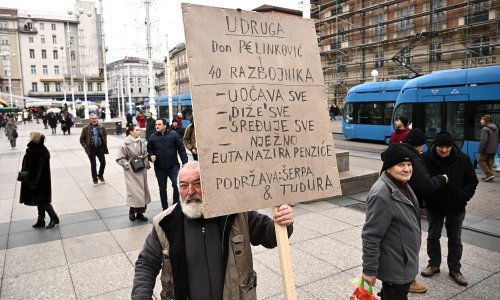 UDRUGA
Don PELINKOVIĆ
I
40 RAZBOJNIKA
- UOČAVA SVE
- DIŽE SVE
- SREĐUJE SVE
- NJEŽNO
EUTANAZIRA PENZIĆE
PODRŽAVA: ŠERPA
& TUDURA